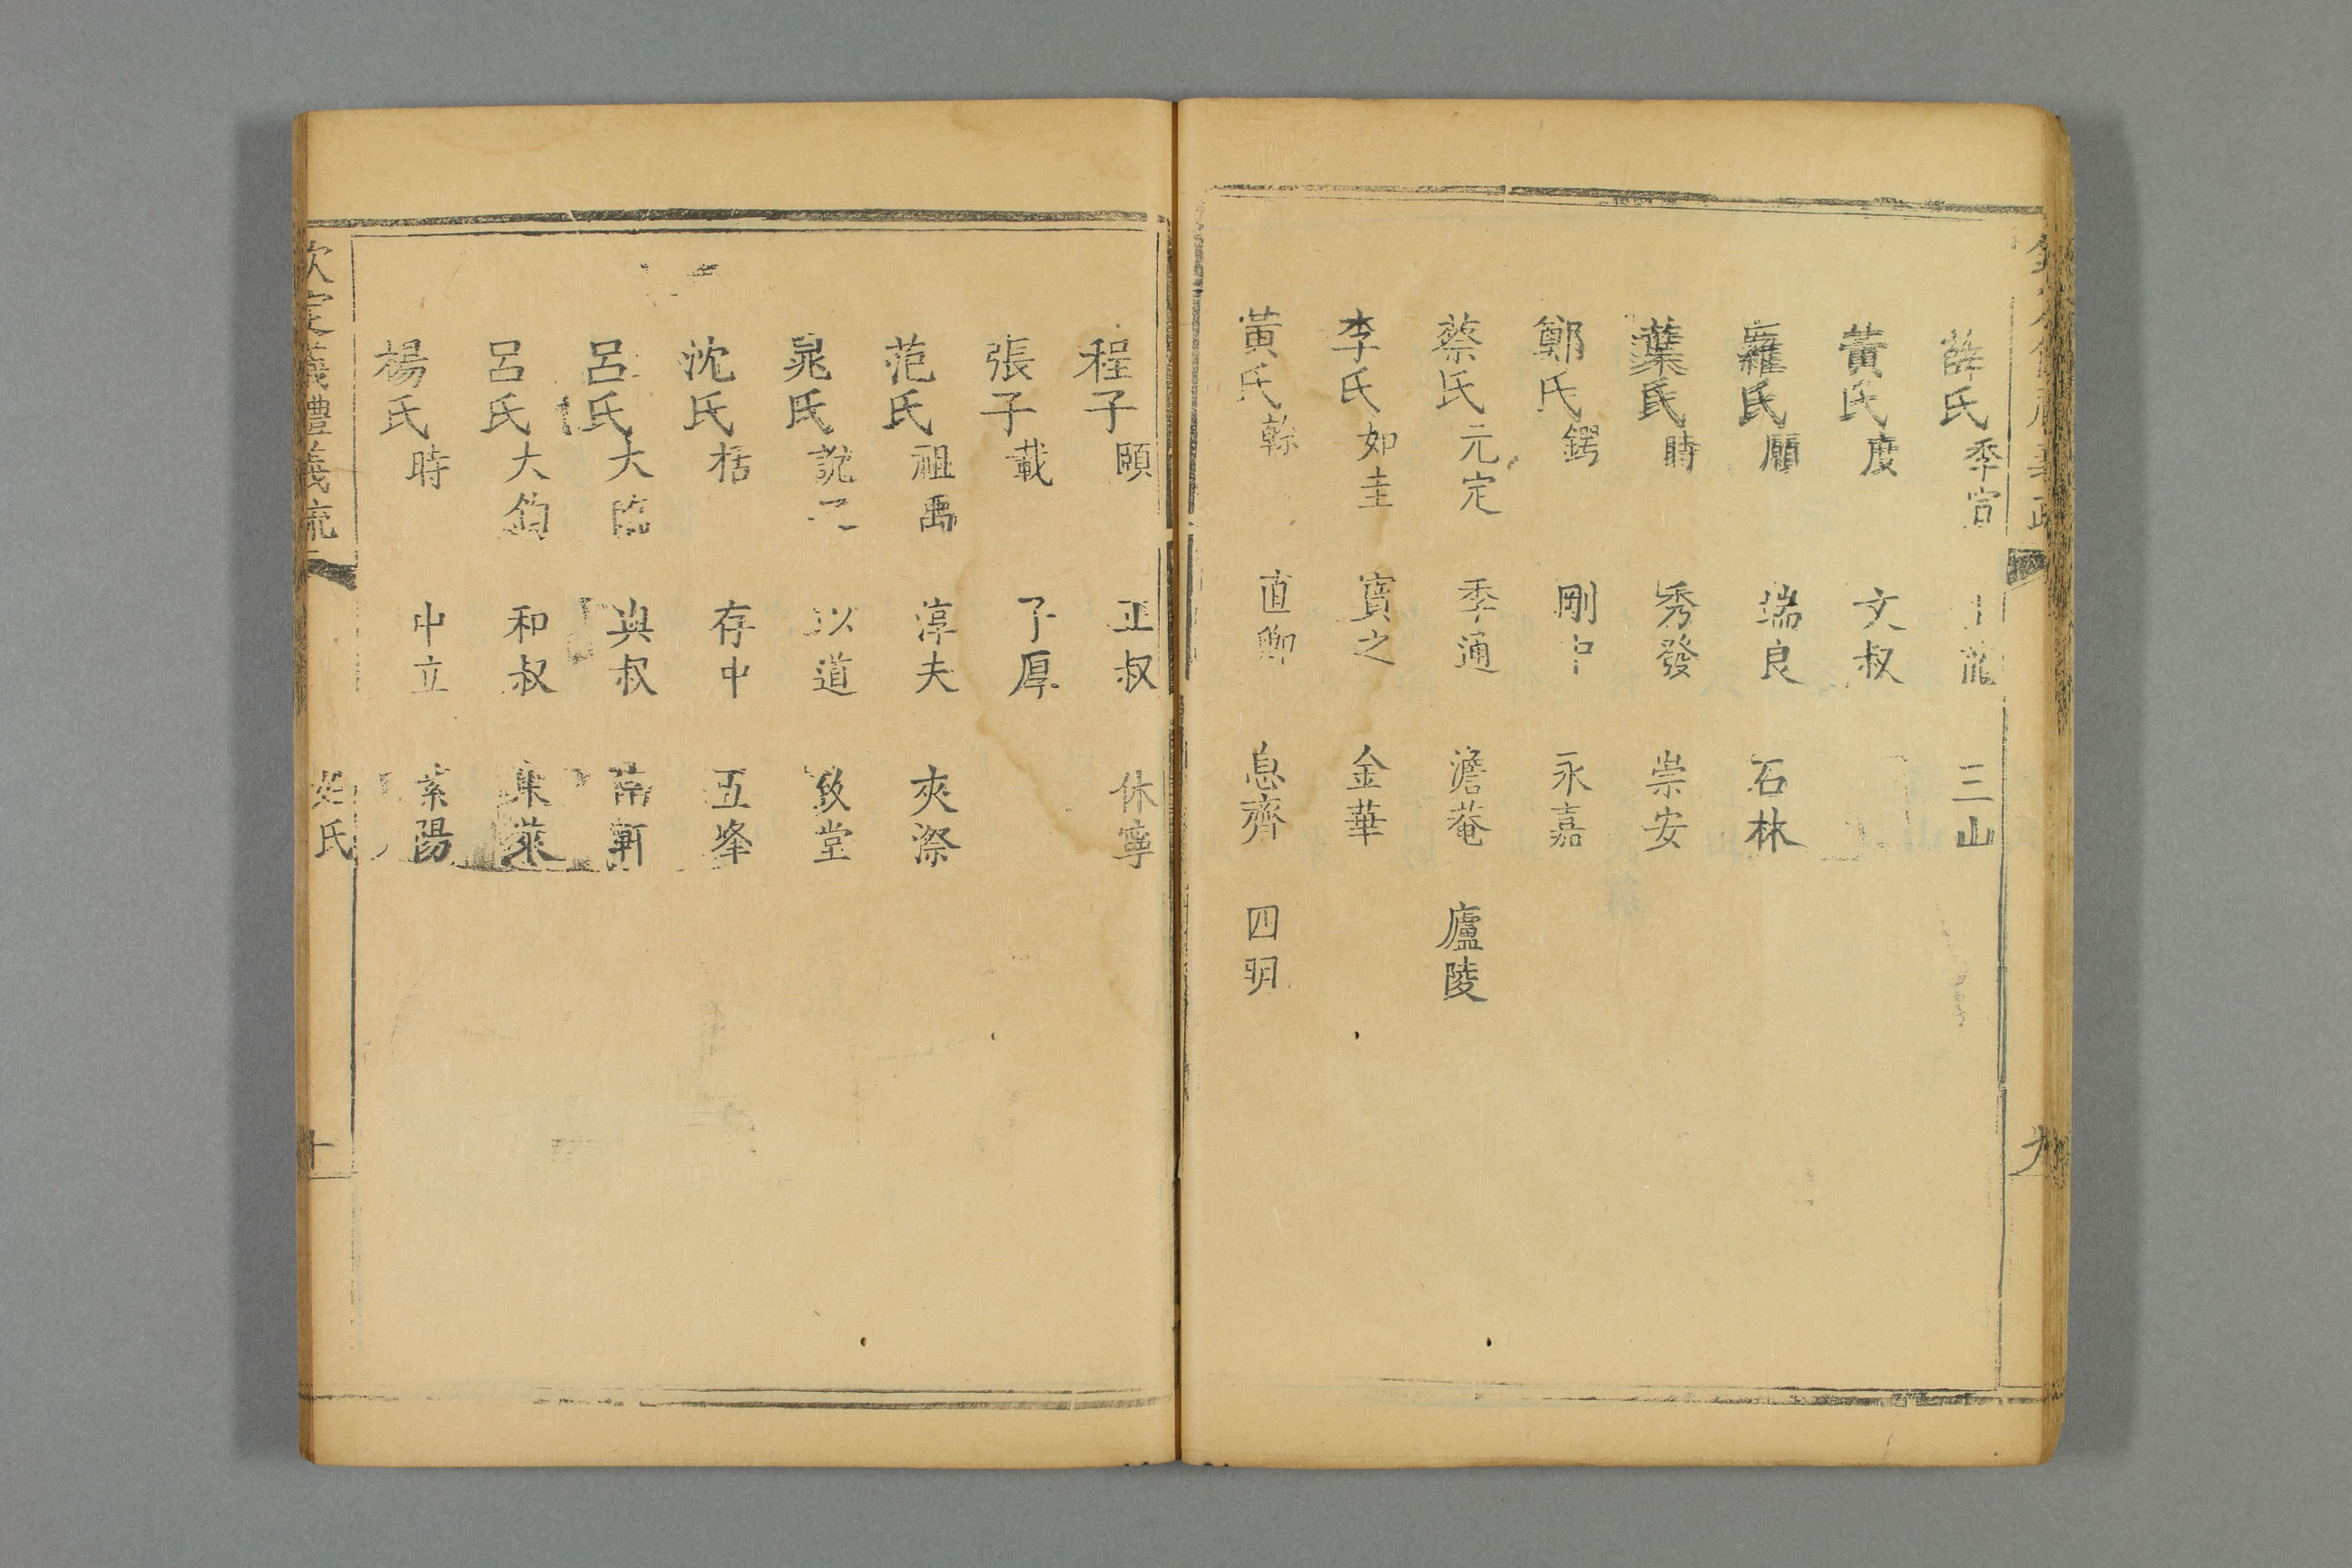 薛氏季宣 龍 三山
黃氏度 文叔
羅氏願 端良 石林
葉氏時 秀發 崇安
鄭氏鍔 剛中 永嘉
蔡氏元定 季通 澹菴 廬陵
李氏如圭 寶之 金華
黃氏榦 直卿 息齊 四明
九
程子頤 正叔 休寧
張子載 子厚
范氏祖禹 淳夫 夾漈
晁氏說之 以道 致堂
沈氏括 存中 五峯
呂氏大臨 與叔 南軒
呂氏大鈞 和叔 東萊
楊氏時 中立 紫陽
欽定義禮義疏 姓氏 十